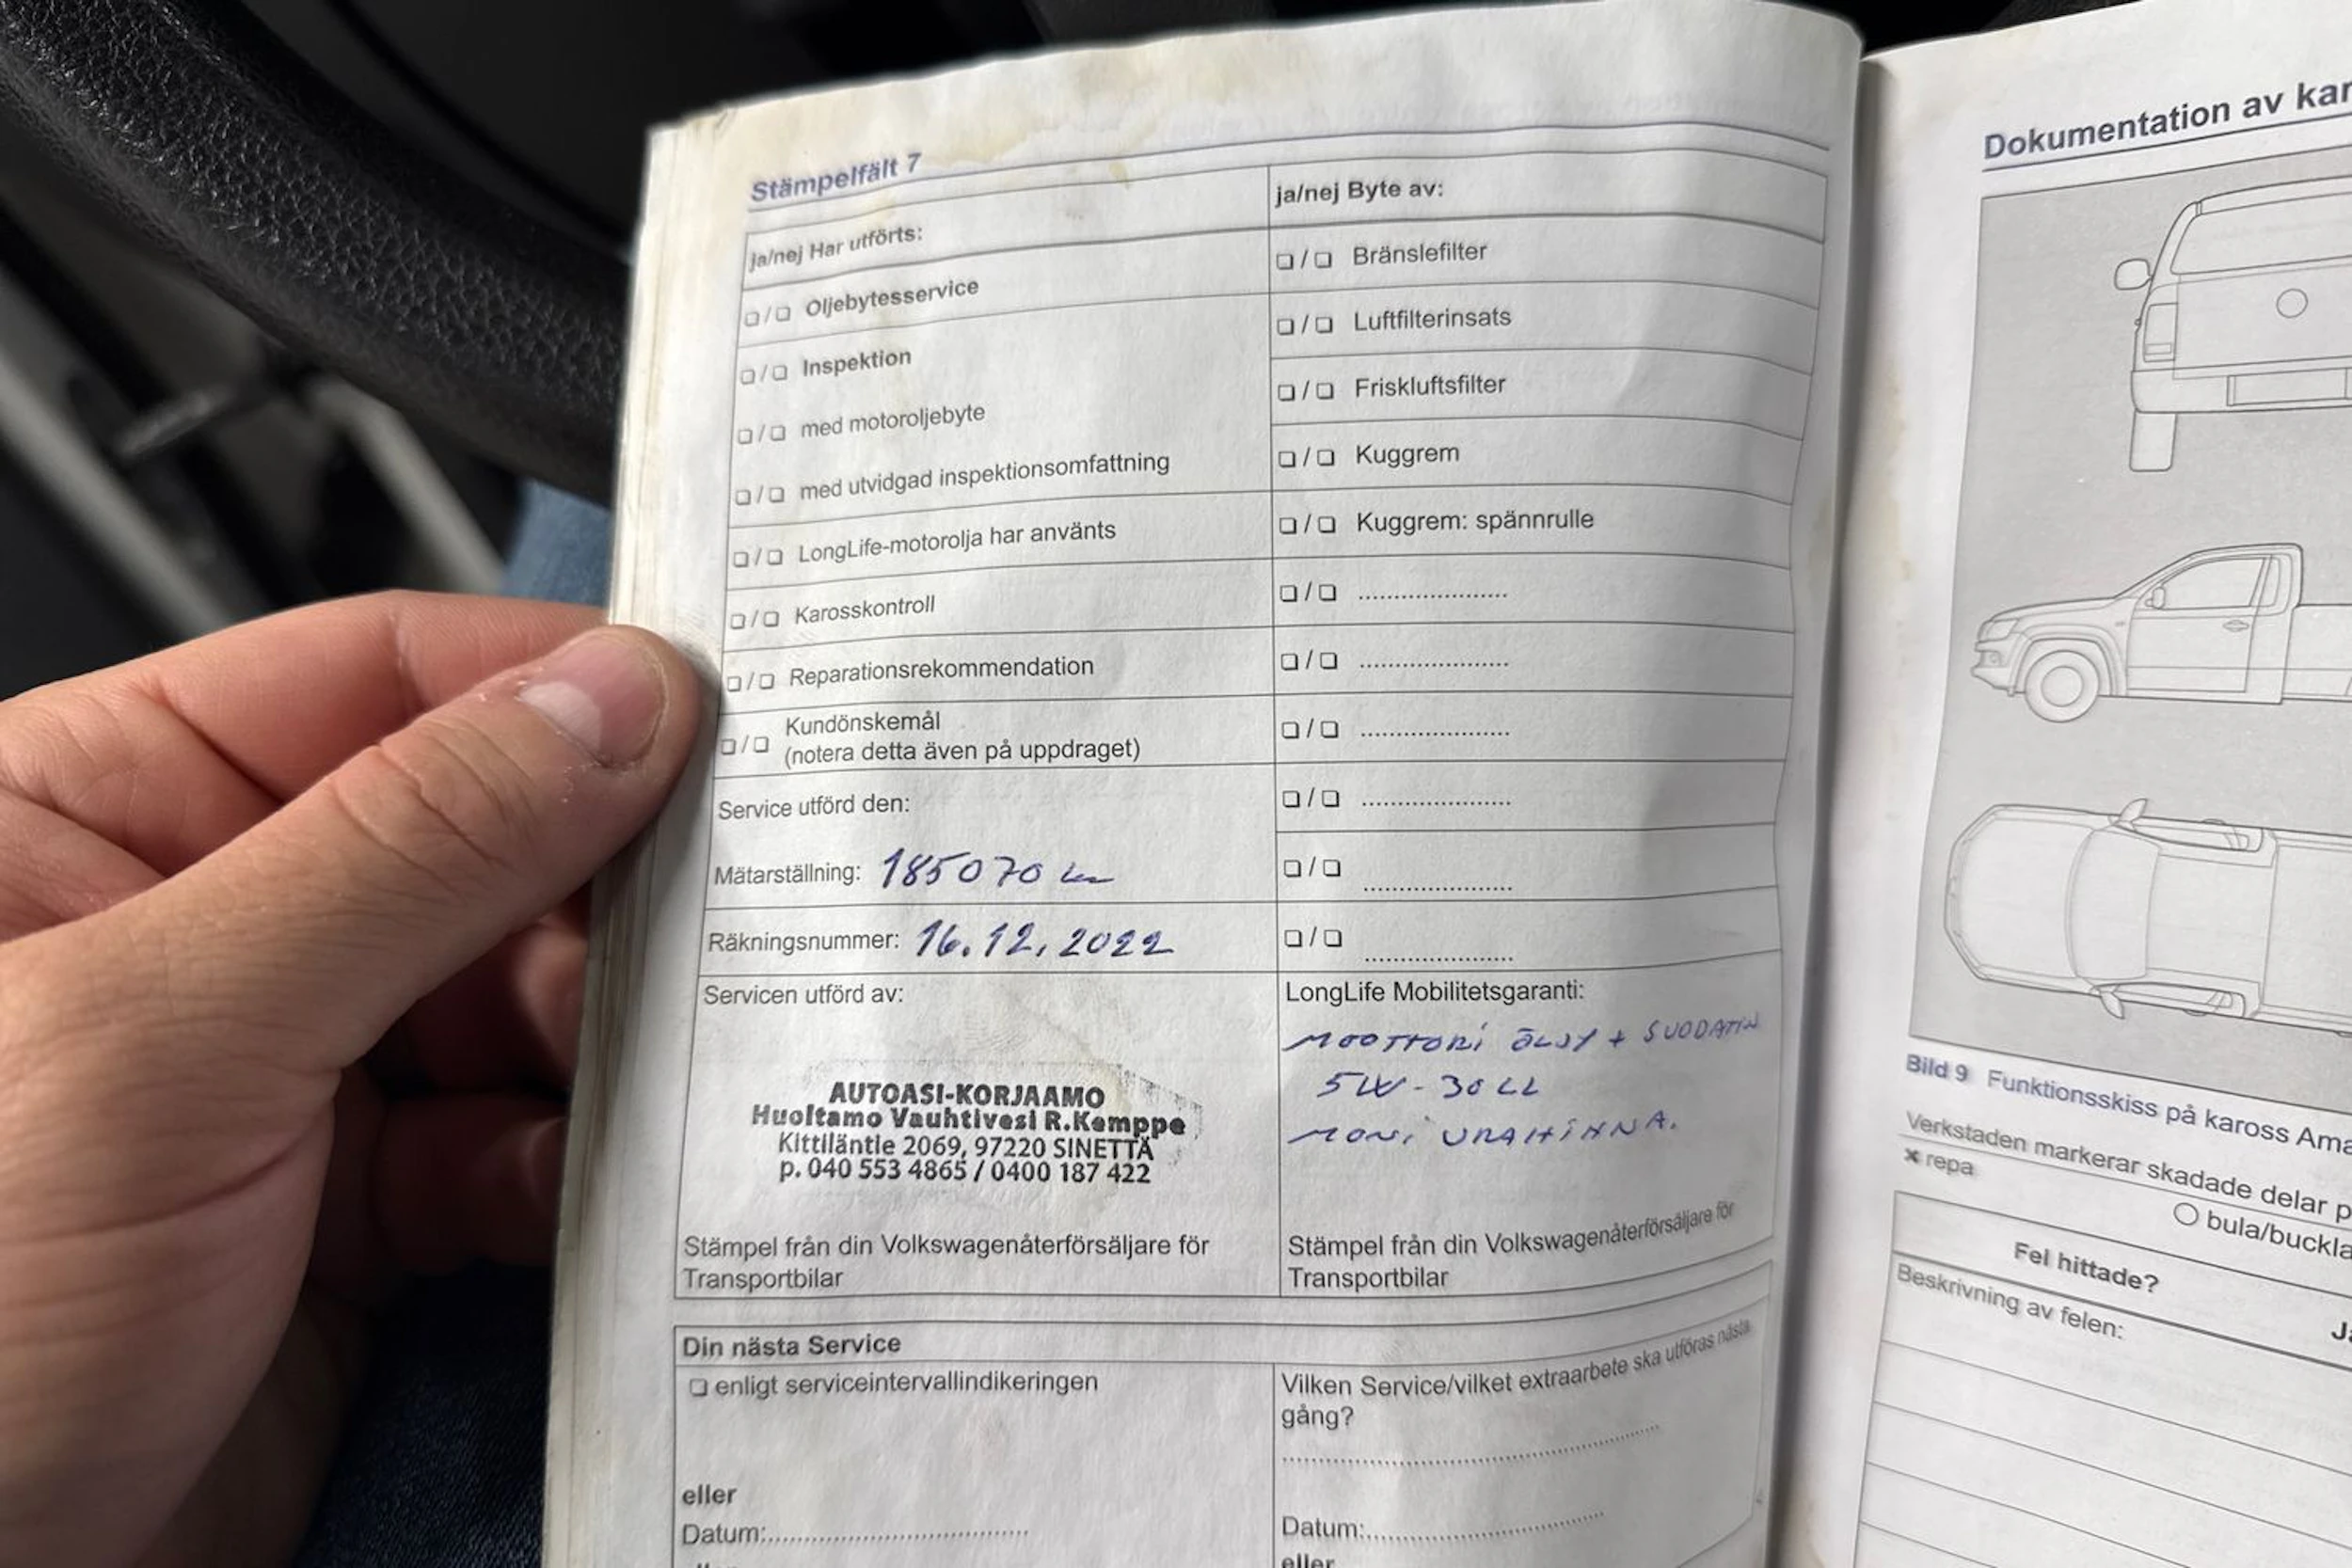 Stämpelfält 7
ja/nej Har utförts:
❏/❏ Oljebytesservice
❏/❏ Inspektion
❏/❏ med motoroljebyte
❏/❏ med utvidgad inspektionsomfattning
❏/❏ LongLife-motorolja har använts
❏/❏ Karosskontroll
❏/❏ Reparationsrekommendation
❏/❏ Kundönskemål
(notera detta även på uppdraget)
Service utförd den:
Mätarställning: 185070 km
Räkningsnummer: 16.12.2022
Servicen utförd av:
AUTOASI-KORJAAMO
Huoltamo Vauhtivesi R.Kemppe
Kittiläntie 2069, 97220 SINETTÄ
p. 040 553 4865 / 0400 187 422
Stämpel från din Volkswagenåterförsäljare för
Transportbilar
ja/nej Byte av:
❏/❏ Bränslefilter
❏/❏ Luftfilterinsats
❏/❏ Friskluftsfilter
❏/❏ Kuggrem
❏/❏ Kuggrem: spännrulle
❏/❏ ......................
❏/❏ ......................
❏/❏ ......................
❏/❏ ......................
❏/❏ ......................
❏/❏ ......................
LongLife Mobilitetsgaranti:
MOOTTORI ÖLJY + SUODATIN
5W-30 LL
MONiURAHiHNA.
Stämpel från din Volkswagenåterförsäljare för
Transportbilar
Din nästa Service
❏ enligt serviceintervallindikeringen
eller
Datum:
Vilken Service/vilket extraarbete ska utföras nästa
gång?
Datum:
eller
Dokumentation av
Bild 9 Funktionsskiss på kaross
Verkstaden markerar skadade delar
× repa
○ bula/buckla
Fel hittade?
Beskrivning av felen: